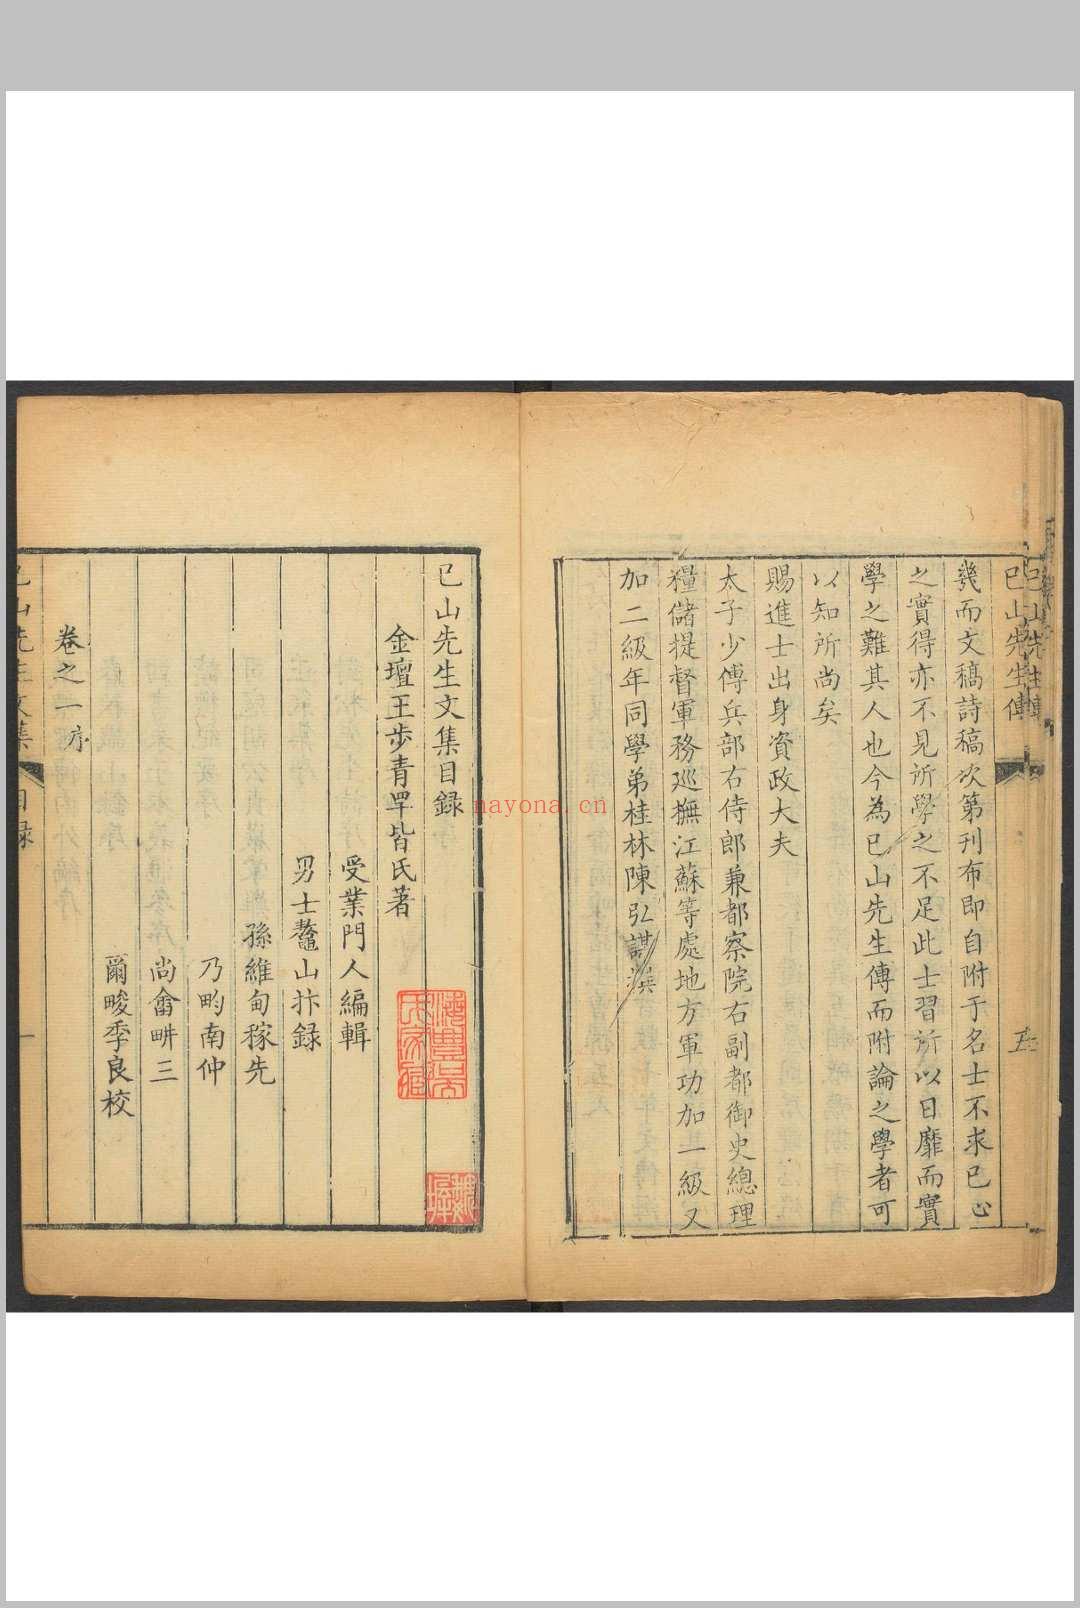 巳山先生傳
幾而文稿詩稿次第刊布即自附于名士不求已心
之實得亦不見所學之不足此士習所以日靡而實
學之難其人也今為巳山先生傳而附論之學者可
以知所尚矣
賜進士出身資政大夫
太子少傅兵部右侍郎兼都察院右副都御史總理
糧儲提督軍務巡撫江蘇等處地方軍功加一級又
加二級年同學弟桂林陳弘謀撰
五
巳山先生文集目錄
金壇王步青罕皆氏著
受業門人編輯
男士鼇山抃錄
孫維甸稼先
乃畇南仲
尚畬畊三
爾畯季良校
卷之一 序
巳山先生文集
目錄
一
nayona.cn